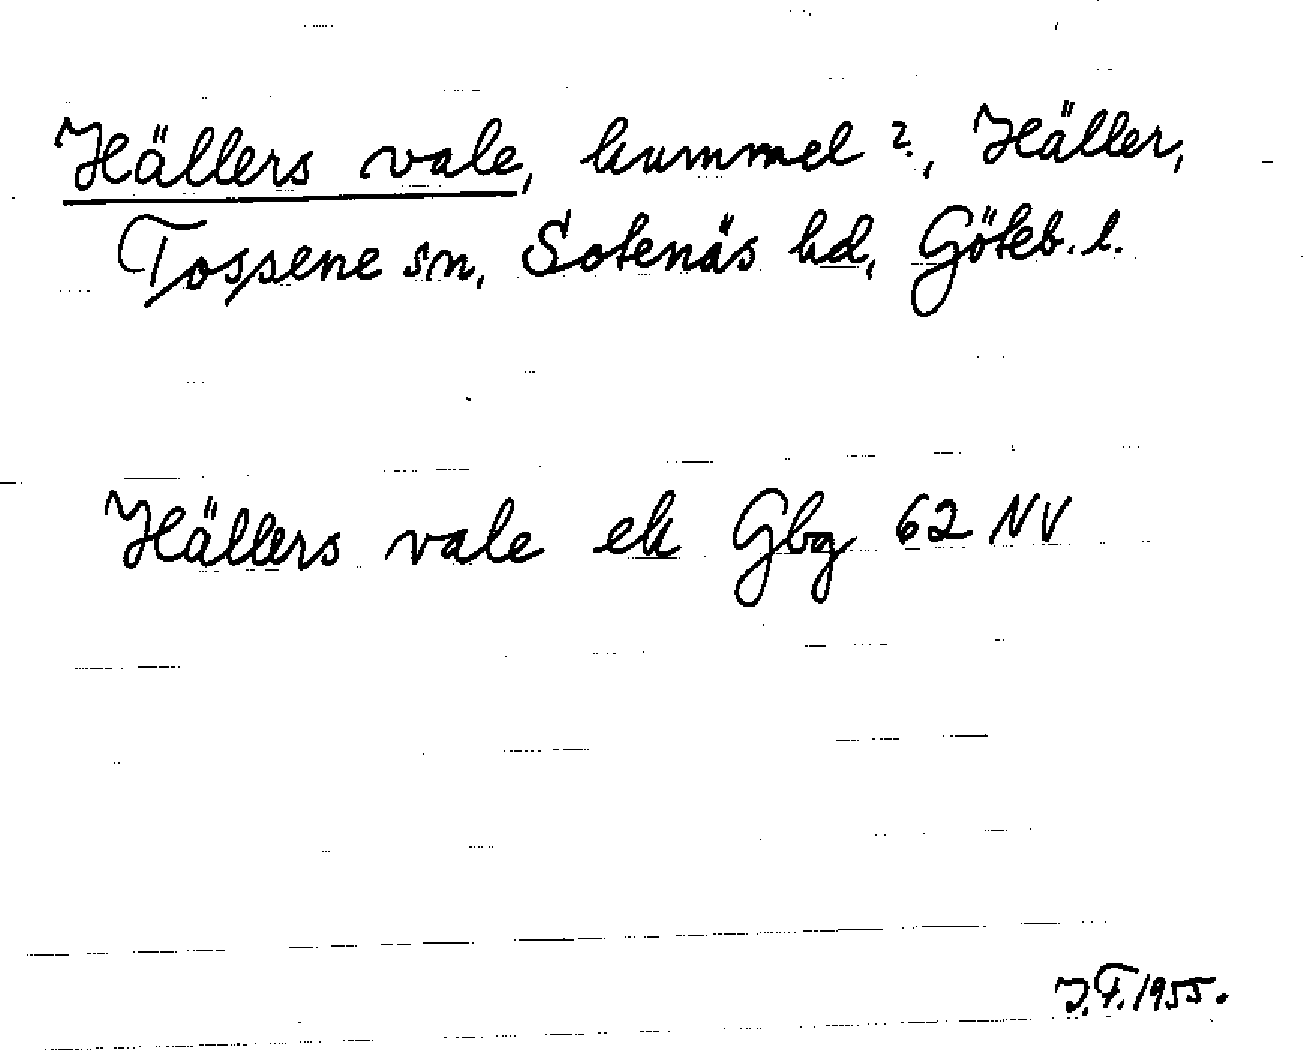 Hällers vale, kummel?, Häller,
Tossene sn, Sotenäs hd, Göteb. l.
Hällers vale ek Gbg 62 NV
J.F. 1955.